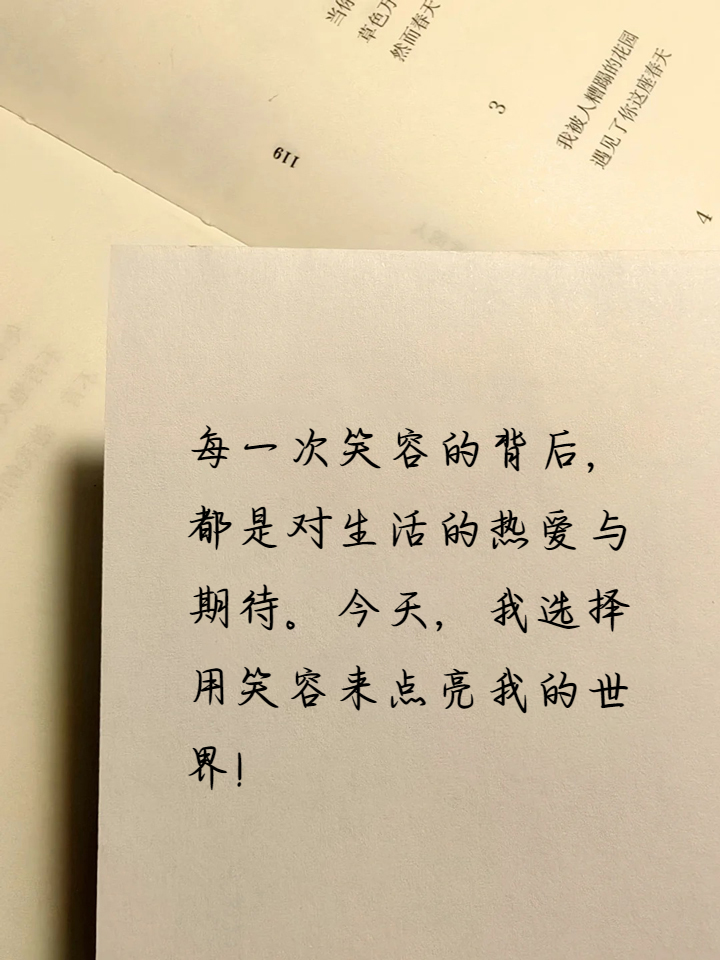 当你
草色万
然而春天
3
我被人糟蹋的花园
遇见了你这座春天
4
119
每一次笑容的背后，
都是对生活的热爱与
期待。今天，我选择
用笑容来点亮我的世
界！